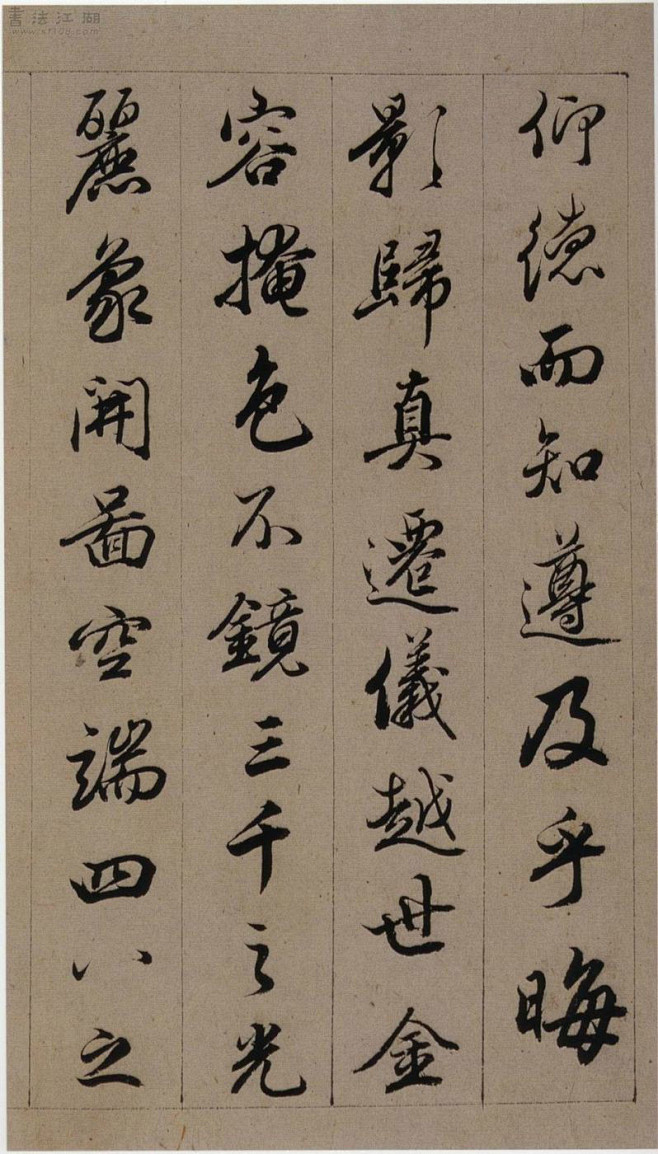 仰德而知遵及乎晦
影歸真遷儀越世金
容掩色不鏡三千之光
麗象開圖空端四八之
書法江湖